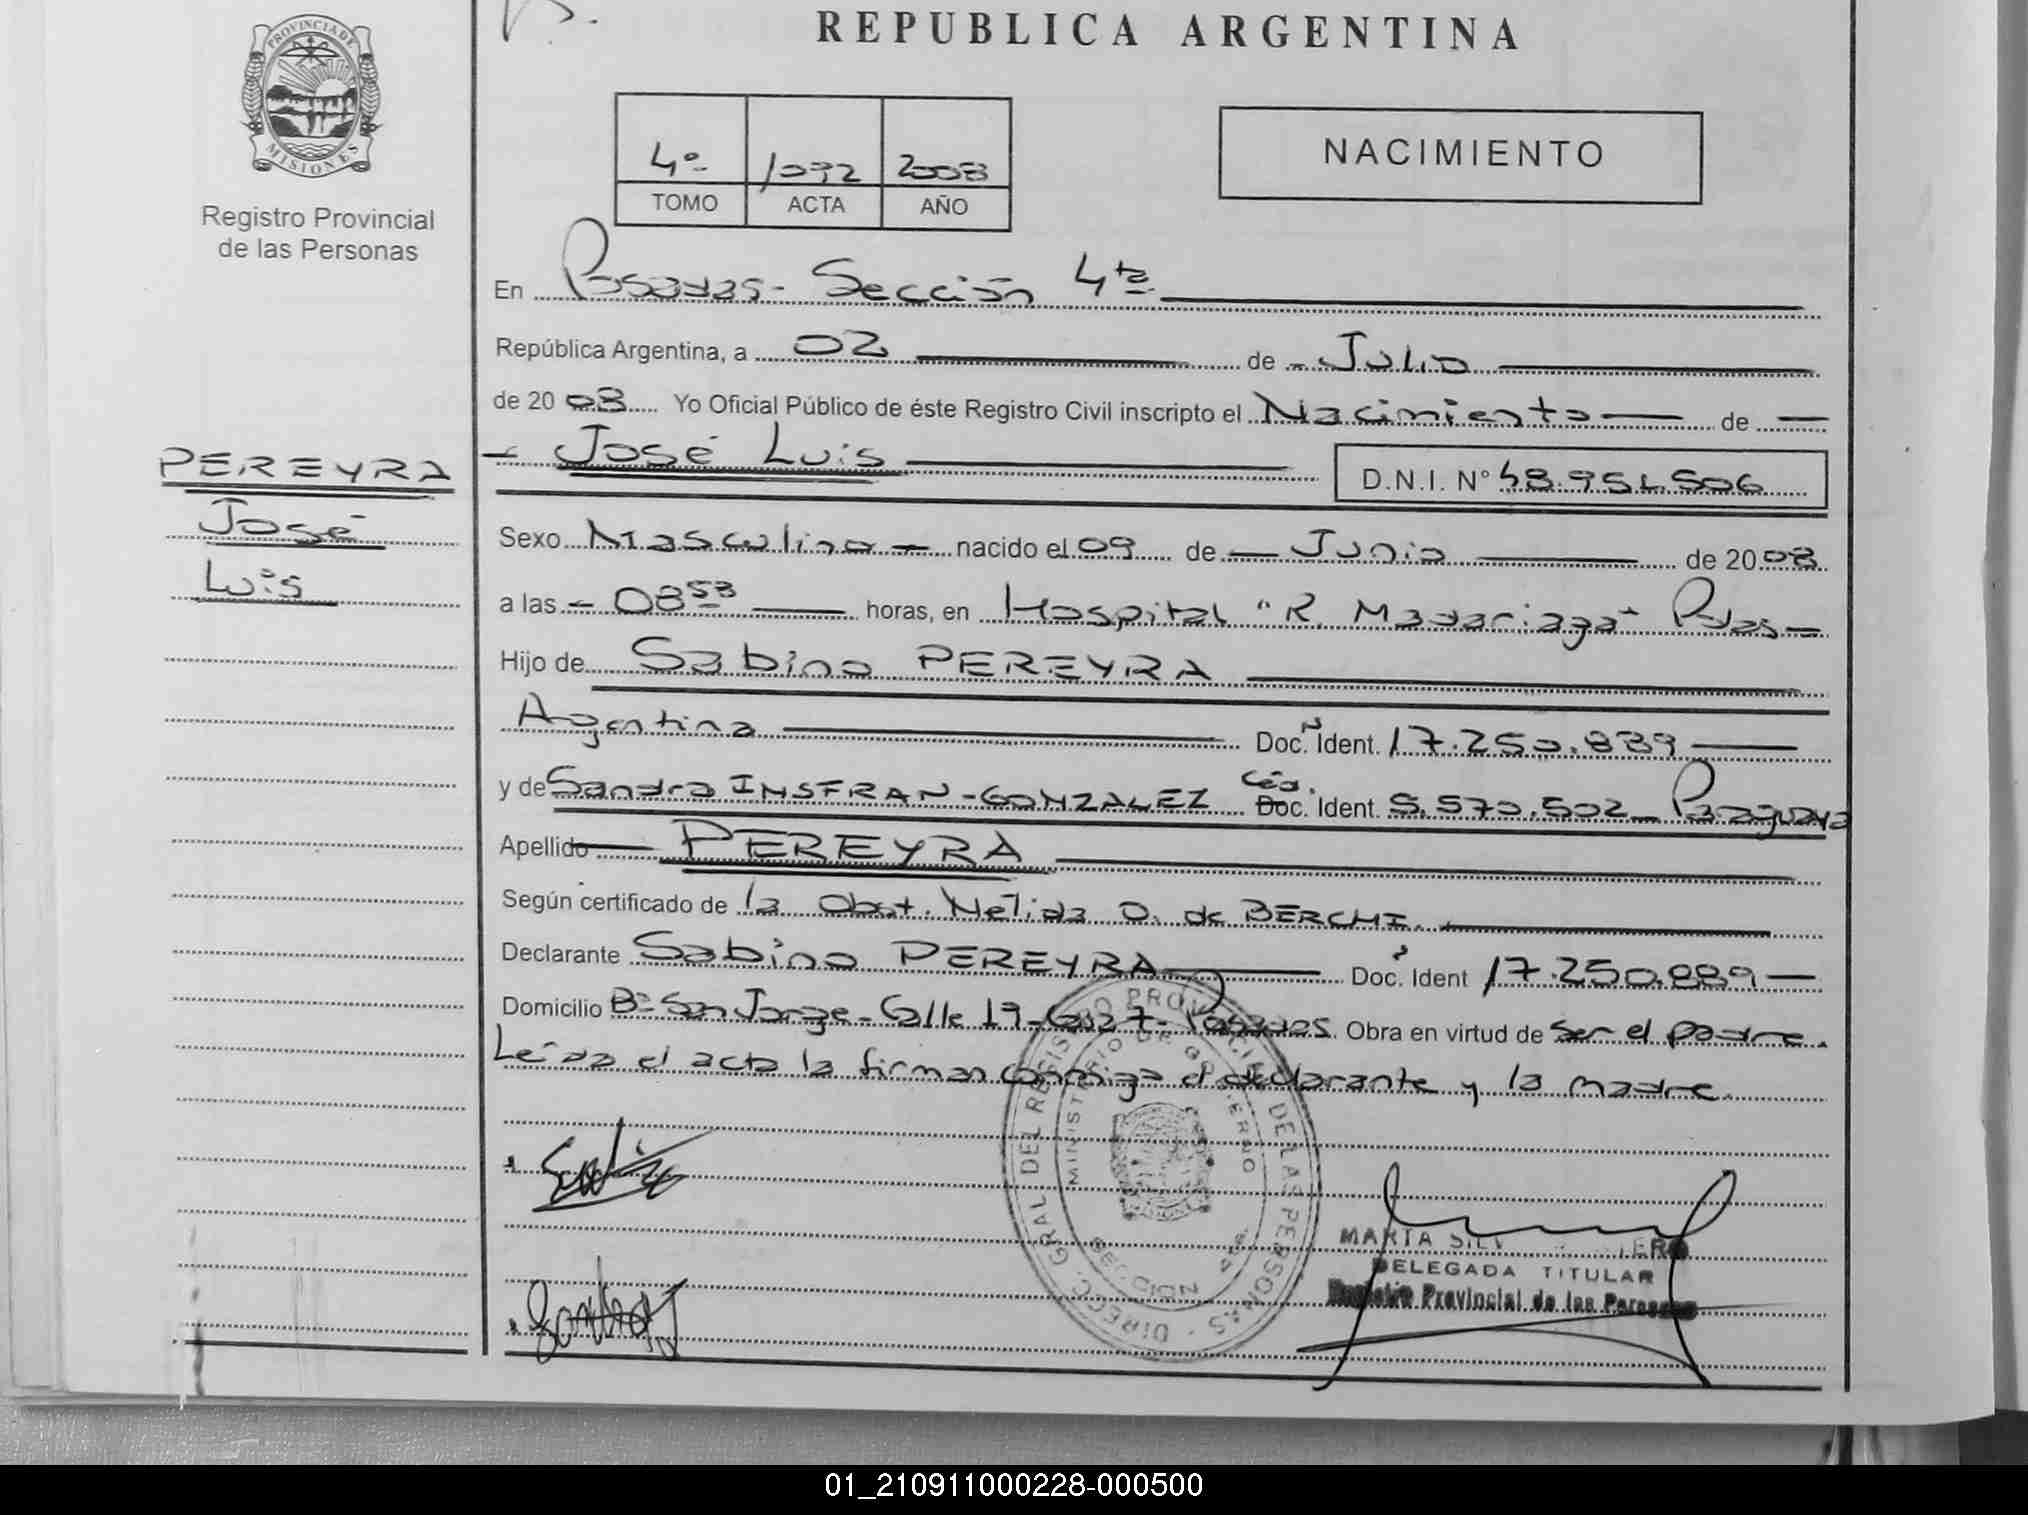 REPUBLICA ARGENTINA
PROVINCIA DE
MISIONES
Registro Provincial
de las Personas
4º 1092 2008
TOMO ACTA AÑO
NACIMIENTO
En Posadas - Sección 4ta
República Argentina, a 02 de Julio
de 2008 Yo Oficial Público de éste Registro Civil inscripto el Nacimiento de
José Luis D.N.I. Nº 48.951.506
PEREYRA
José
Luis
Sexo Masculino nacido el 09 de Junio de 2008
a las 08 53 horas, en Hospital "R. Madariaga" Pdas
Hijo de Sabino PEREYRA
Argentina Doc. Ident. 17.250.889
y de Sandra INSFRAN-GONZALEZ Céd. Doc. Ident. 5.570.502 Paraguaya
Apellido PEREYRA
Según certificado de la Obst. Nélida O. de BERCHI.
Declarante Sabino PEREYRA Doc. Ident 17.250.889
Domicilio Bº San Jorge - Calle 19 - 7 - Posadas. Obra en virtud de ser el padre.
Leída el acta la firman conmigo el declarante y la madre.
DIRECC. GRAL DEL REGISTRO PROVINCIAL DE LAS PERSONAS
MINISTERIO DE GOBIERNO
MARTA
DELEGADA TITULAR
Registro Provincial de las Personas
01_210911000228-000500